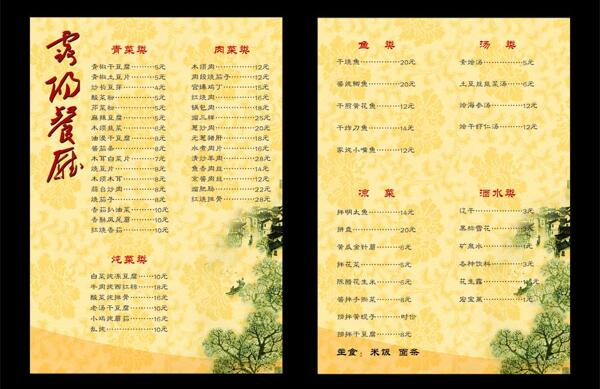 餐厅
青菜类
青椒干豆腐 5元
青椒土豆片 5元
炒长豆芽 4元
酸菜粉 5元
芹菜粉 5元
麻辣豆腐 5元
木须韭菜 6元
油浸干豆腐 8元
番茄条 6元
木耳白菜片 7元
烧豆片 8元
木须木耳 8元
烧茄子 8元
香菇扒油菜 10元
香酥凤尾蘑 10元
红烧香菇 10元
炖菜类
白菜炖冻豆腐 10元
牛肉炖西红柿 18元
酸菜炖排骨 16元
老汤干豆腐 10元
小鸡炖蘑菇 16元
乱炖 10元
肉菜类
木须肉 12元
肉段烧茄子 12元
宫爆鸡丁 15元
红烧肉 16元
锅包肉 18元
溜三样 25元
葱炒肉 20元
元葱猪肝 18元
水煮肉片 16元
清炒羊肉 28元
鱼香肉丝 14元
京酱肉丝 18元
溜肥肠 22元
红烧排骨 28元
鱼 类
干烧鱼 20元
酱炖鲫鱼 20元
干煎黄花鱼 12元
干炸刀鱼 14元
家炖小嘴鱼 12元
汤 类
素烩汤 5元
土豆丝韭菜汤 6元
烩海参汤 12元
烩干虾仁汤 12元
凉 菜
拌明太鱼 14元
拼盘 20元
黄瓜金针蘑 6元
拌花菜 5元
陈醋花生米 6元
酱拌手撕菜 8元
捞拌黄蚬子 时价
捞拌干豆腐 8元
主食：米饭 面条
酒水类
辽干 3元
黑标雪花 3元
矿泉水 1元
各种饮料 3元
花生露 4元
宏宝莱 1元